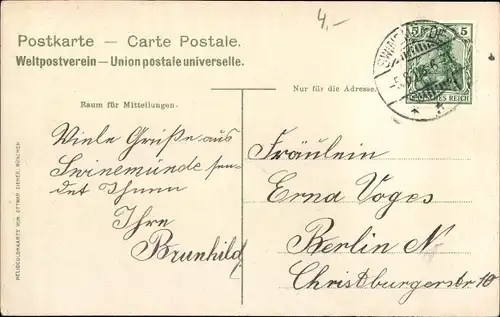 4,-
Postkarte — Carte Postale.
Weltpostverein — Union postale universelle.
Nur für die Adresse.
Raum für Mitteilungen.
5 5
REICH
Viele Grüße aus
Swinemünde sen-
det Ihnen
Ihre
Brunhild
Fräulein
Erna Voges
Berlin N
Christburgerstr 10
HELIOCOLORKARTE VON OTTMAR ZIEHER, MÜNCHEN